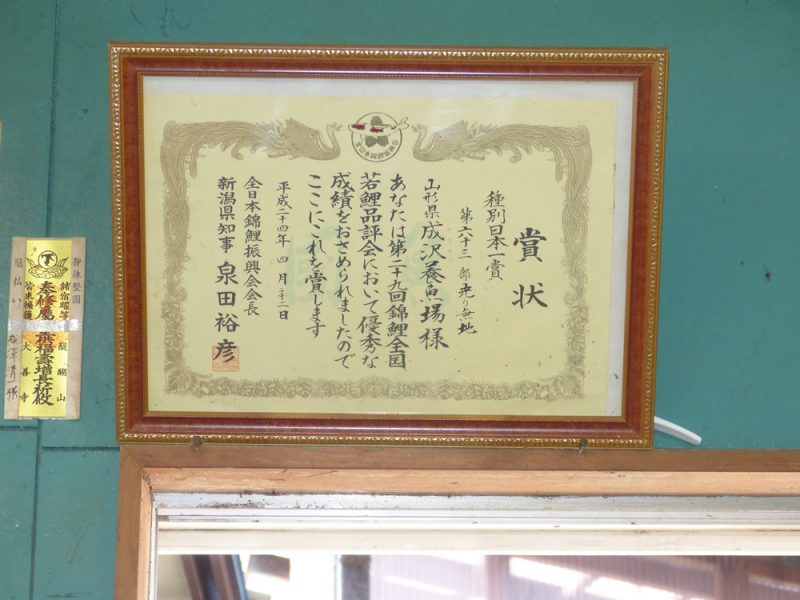 賞状
種別日本一賞
第六十三部 光り無地
山形県 成沢養魚場様
あなたは第二十九回錦鯉全国
若鯉品評会において優秀な
成績をおさめられましたので
ここにこれを賞します
平成二十四年 四月二十二日
全日本錦鯉振興会会長
新潟県知事 泉田裕彦
身体堅固
諸宿曜等 醍醐山
大善寺
厄払い